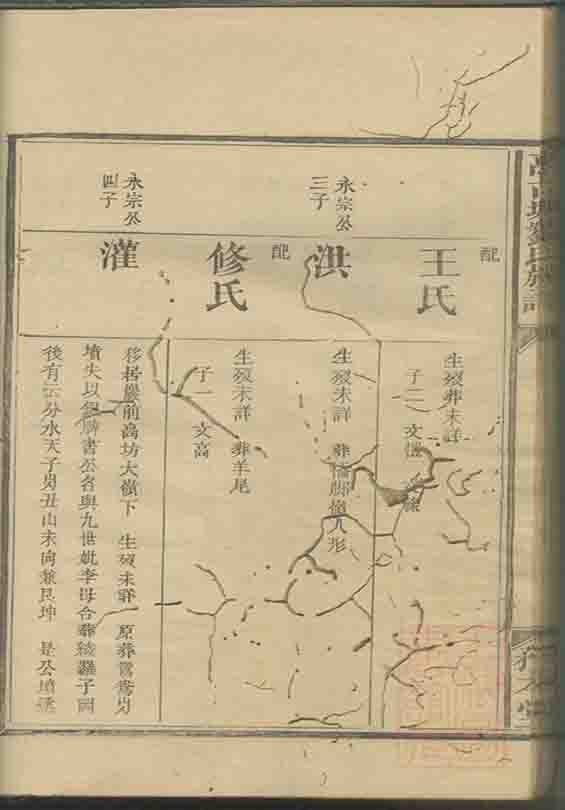 配
王氏
生歿葬未詳
子二 文
永宗公
三子
洪
生歿未詳 葬 嶺人形
配
修氏
生歿未詳 葬羊尾
子一 文高
永宗公
四子
灌
移居嚴前高坊大嶺下 生歿未詳 原葬鴛鴦
墳失以銀牌書公名與九世妣李母合葬 子岡
後有云分水天子 丑山未向兼艮坤 是公墳